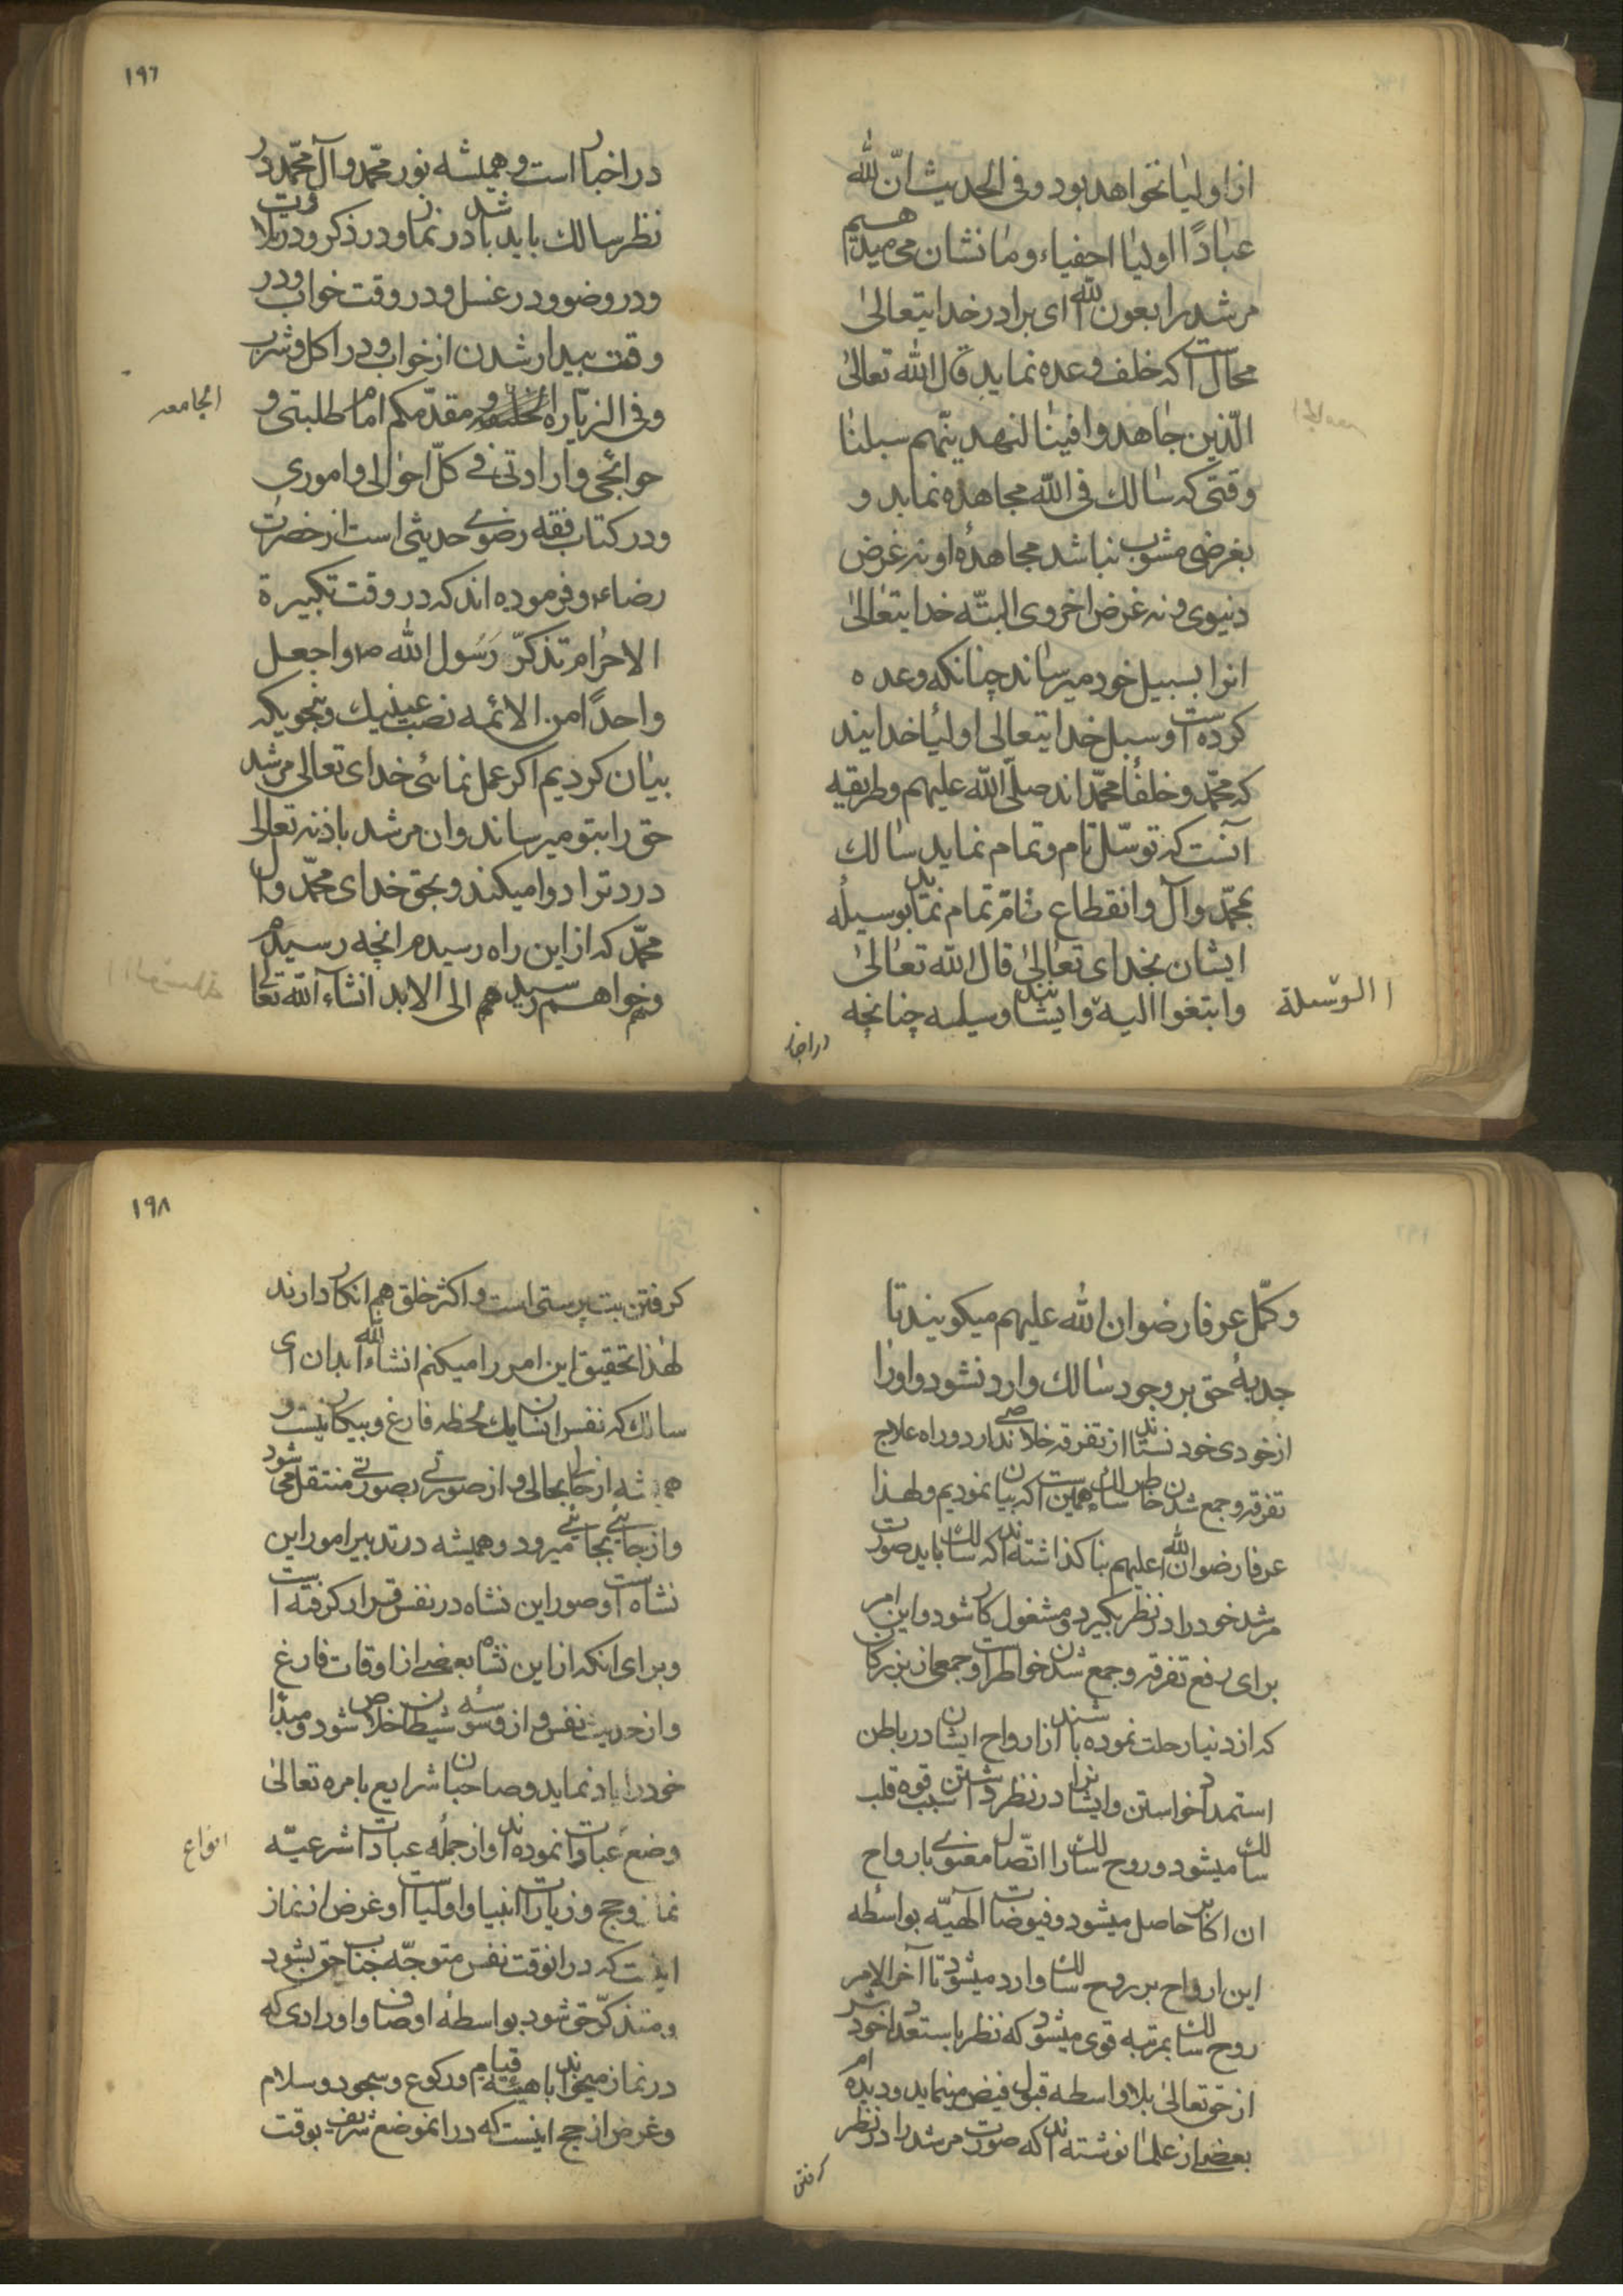 از اولیا نخواهد بود و فی الحدیث انّ لله
عبادًا اولیا اخفیاء و ما نشان می‌میدهیم
مرشد را بعون الله ای برادر خدایتعالی
محالست که خلف وعده نماید قال الله تعالی
الّذین جاهدوا فینا لنهدینّهم سبلنا
وقتی که سالک فی الله مجاهده نماید و
بغرضی مشوب نباشد مجاهدهٔ او نه غرض
دنیوی و نه غرض اخروی البتّه خدایتعالی
انرا بسبیل خود میرساند چنانکه وعده
کرده است و سبل خدایتعالی اولیا خدایند
که محمّد و خلفا محمّد اند صلّی الله علیهم و طریقه
آنست که توسّل تام و تمام نماید سالک
بمحمّد و آل و انقطاع تامّ تمام نماید بوسیله
ایشان بخدای تعالی قال الله تعالی
وابتغوا الیه الوسیلة و ایشانند وسیله چنانچه
در اخبار
۱۹۶
در اخبار است و همیشه نور محمّد و آل محمّد در
نظر سالک باید باشد در نماز و در ذکر و در تلاوت
و در وضو و در غسل و در وقت خواب و در
وقت بیدار شدن از خواب و در اکل و شرب
و فی الزیاره الجامعه و مقدّمکم امام طلبتی و
حوائجی و ارادتی فی کلّ احوالی و اموری
و در کتاب فقه رضوی حدیثی است از حضرت
رضاء و فرموده اند که در وقت تکبیرة
الاحرام تذکّر رسول الله ص و اجعل
واحدًا من الائمه نصب عینیک و بنحویکه
بیان کردیم اکر عمل نمائی خدای تعالی مرشد
حق را بتو میرساند و ان مرشد باذنه تعالی
درد ترا دوا میکند و بحق خدای محمّد و آل
محمّد که از این راه رسیدم انچه رسیدم
و خواهم رسید هم الی الابد انشاء الله تعالی
و کمّل عرفا رضوان الله علیهم میکویند تا
جذبهٔ حق بر وجود سالک وارد نشود و او را
از خودی خود نستاند از تفرقه خلاصی ندارد و راه علاج
تفرقه و جمع شدن خاطر سالک همین است که بیان نمودیم و لهذا
عرفا رضوان الله علیهم بنا کذاشته اند که سالک باید صورت
مرشد خود را در نظر بکیرد و مشغول کار شود و این امر
برای رفع تفرقه و جمع شدن خواطر است و جمعی از بزرکان
که از دنیا رحلت نموده باشند از ارواح ایشان در باطن
استمداد خواستن و ایشانرا در نظر داشتن سبب قوه قلب
سالک میشود و روح سالک را اتّصال معنوی با رواح
ان اکابر حاصل میشود و فیوضات آلهیّه بواسطه
این ارواح بر روح سالک وارد میشود تا آخر الامر
روح سالک بمرتبه قوی میشود که نظر باستعداد خود
از حق تعالی بلاواسطه قبول فیض مینماید و دیده ام
بعضی از علما نوشته اند که صورت مرشد را در نظر
کرفتن
۱۹۸
کرفتن بت پرستی است و اکثر خلق هم انکار دارند
لهذا تحقیق این امر را میکنم انشاء الله بدان ای
سالک که نفس انسان یک لحظه فارغ و بیکار نیست و
همیشه از حالی بحالی و از صورتی بصورتی منتقل می شود
و از جائی بجائی میرود و همیشه در تدبیر امور این
نشاه است و صور این نشاه در نفس قرار کرفته است
و برای انکه از این نشاه بعضی از اوقات فارغ
و از حدیث نفس و از وسوسه شیطان خلاص شود و مبدأ
خود را یاد نماید و صاحبان شرایع بامره تعالی
وضع انواع عبادات نموده اند و از جملهٔ عبادات شرعیّه
نماز و حج و زیارات انبیا و اولیا است و غرض از نماز
اینست که در انوقت نفس متوجّه جناب حق بشود
و متذکّر حق شود بواسطهٔ اوصاف و اورادی که
در نماز میخواند با هیئه قیام و رکوع و سجود و سلام
و غرض از حج اینست که در انموضع شریف بوقت